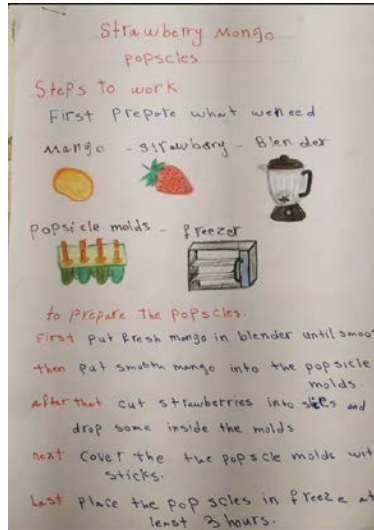 Strawberry Mongo
popscles
Steps to work
First Prepare what weneed
mango - strawberry - Blender
popsicle molds - freezer
to prepare the popscles.
First put fresh mango in blender until smoot
then put smooth mango into the popsicle
molds.
after that cut strawberries into slices and
drop some inside the molds
next cover the the popscle molds wit
sticks.
Last place the pop scles in freeze at
least 3 hours.